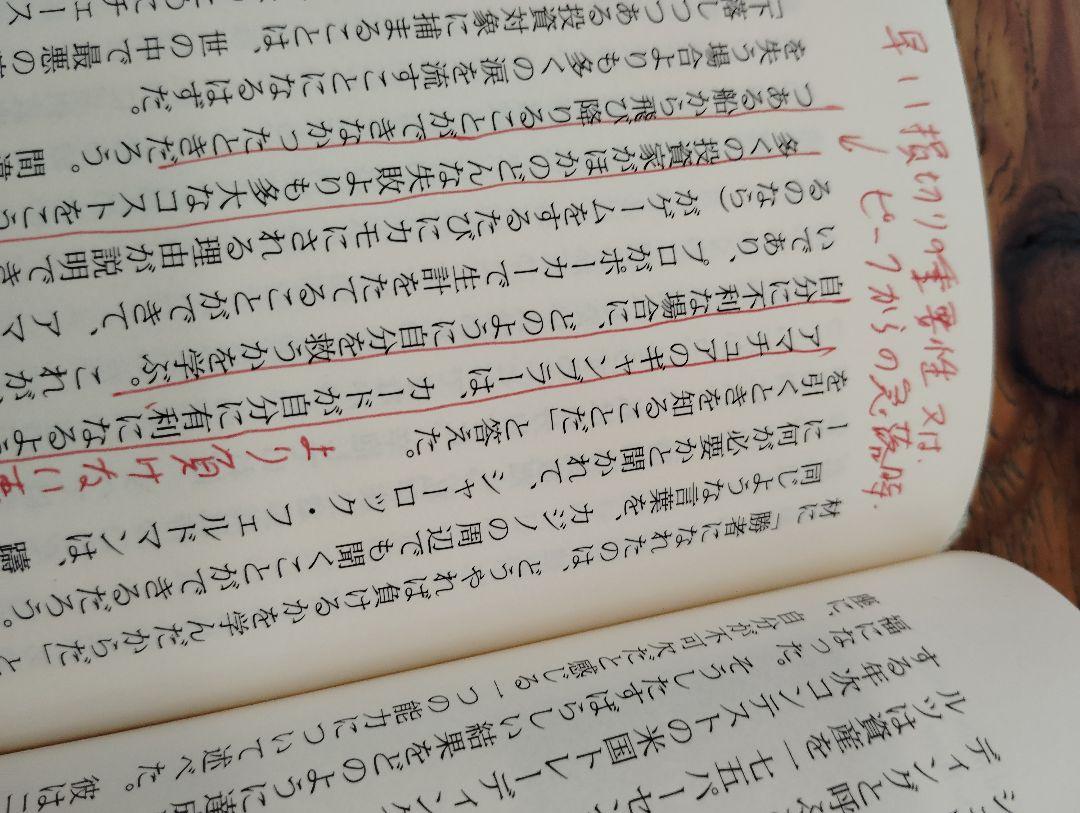 ディングと呼
ルツは資産を一七五パーセン
する年次コンテストの米国トレーディン
福になった。そうしたすばらしい結果をどのように達
座に、自分が不可欠だと感じる一つの能力について述べた。彼は二
材に「勝者になれたのは、どうやれば負けるかを学んだからだ」と
同じような言葉を、カジノの周辺でも聞くことができるだろう。
ーに何が必要かと聞かれて、シャーロック・フェルドマンは、躊
を引くときを知ることだ」と答えた。
より負けない
アマチュアのギャンブラーは、カードが自分に有利になるよ
自分に不利な場合に、どのように自分を救うかを学ぶ。これが、
いであり、プロがポーカーで生計をたてることができて、アマ
るのなら）がゲームをするたびにカモにされる理由が説明でき
多くの投資家がほかのどんな失敗よりも多大なコストをこう
つある船から飛び降りることができなかったときだろう。間違
を失う場合よりも多くの涙を流すことになるはずだ。
「下落しつつある投資対象に捕まることは、世の中で最悪の
チェース
早い損切りの重要性 又は
ピークからの急落時